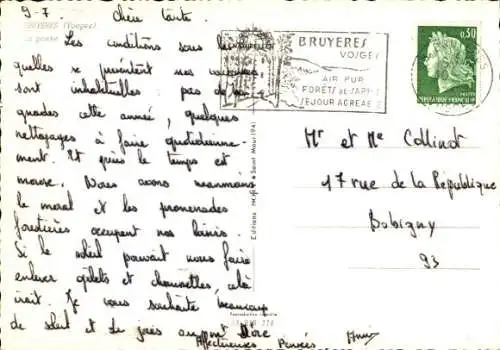 9-7 Chère Tante
BRUYERES (Vosges)
La poste
Les conditions sous lesquelles
quelles se présentent nos vacances
sont inhabituelles : pas de
grandes cette année, quelques
nettoyages à faire quotidienne-
ment. Et puis le temps est
morose. Nous avons néanmoins
le moral et les promenades
forestières occupent nos loisirs.
Si le soleil pouvait nous faire
enlever gilets et chaussettes, cela
irait. Je vous souhaite beaucoup
de et de
Affectueuses Pensées
BRUYERES
VOSGES
AIR PUR
FORÊTS DE SAPINS
SEJOUR AGREABLE
0,30
REPUBLIQUE FRANÇAISE
Mr et Me Collinot
17 rue de la République
Bobigny
93